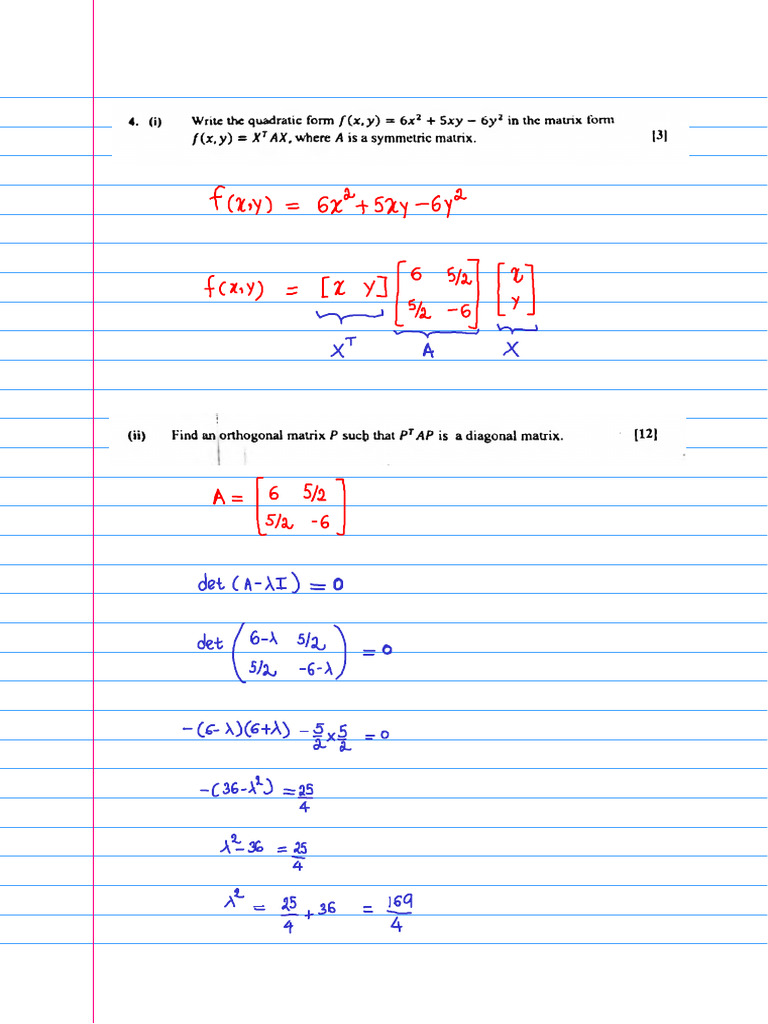 4. (i) Write the quadratic form f(x, y) = 6x² + 5xy − 6y² in the matrix form
f(x, y) = XᵀAX, where A is a symmetric matrix. [3]
f(x,y) = 6x² + 5xy − 6y²
f(x,y) = [x y] [6 5/2] [x]
[5/2 −6] [y]
Xᵀ A X
(ii) Find an orthogonal matrix P such that PᵀAP is a diagonal matrix. [12]
A = [6 5/2]
[5/2 −6]
det (A−λI) = 0
det (6−λ 5/2) = 0
(5/2 −6−λ)
−(6−λ)(6+λ) − 5/2 × 5/2 = 0
−(36−λ²) = 25/4
λ²−36 = 25/4
λ² = 25/4 + 36 = 169/4